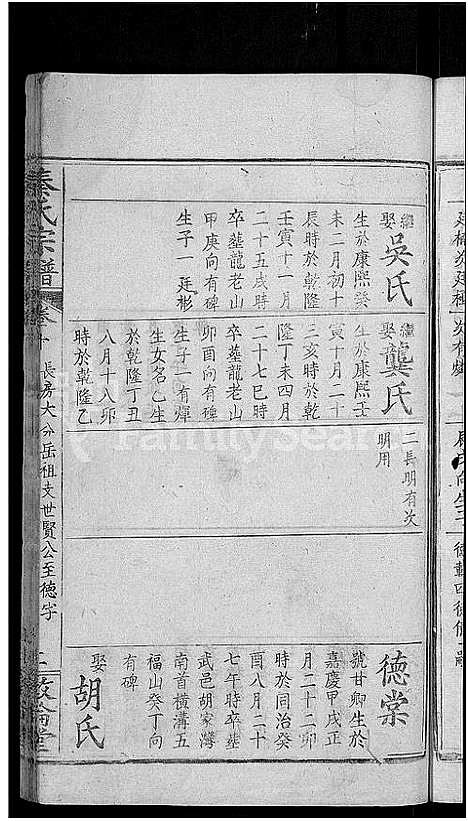 繼娶吳氏
生於康熙癸
未二月初十
辰時於乾隆
壬寅十一月
二十五戌時
卒塟龍老山
甲庚向有碑
生子一廷彬
繼娶龔氏
生於康熙壬
寅十月二十
三亥時於乾
隆丁未四月
二十七巳時
卒塟龍老山
卯酉向有碑
生子一有燡
生女名乙生
於乾隆丁丑
八月十八卯
時於乾隆乙
二長明有次
明用
德棠
號甘卿生於
嘉慶甲戌正
月二十二卯
時於同治癸
酉八月二十
七午時卒塟
武邑胡家灣
南首橫溝五
福山癸丁向
有碑
娶胡氏
秦氏宗譜
卷十
長房大分岳祖支世賢公至德字
敦倫堂
FamilySearch